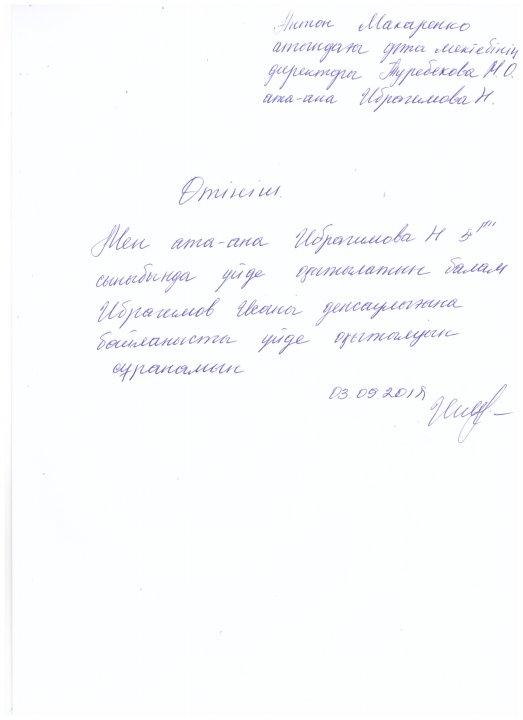 Антон Макаренко
атындағы орта мектебінің
директоры Туребекова М.О.
ата-ана Ибрагимова Н.
Өтініш.
Мен ата-ана Ибрагимова Н 5 "г"
сыныбында үйде оқытылатын балам
Ибрагимов денсаулығына
байланысты үйде оқытылуын
сұранамын
03.09.2018